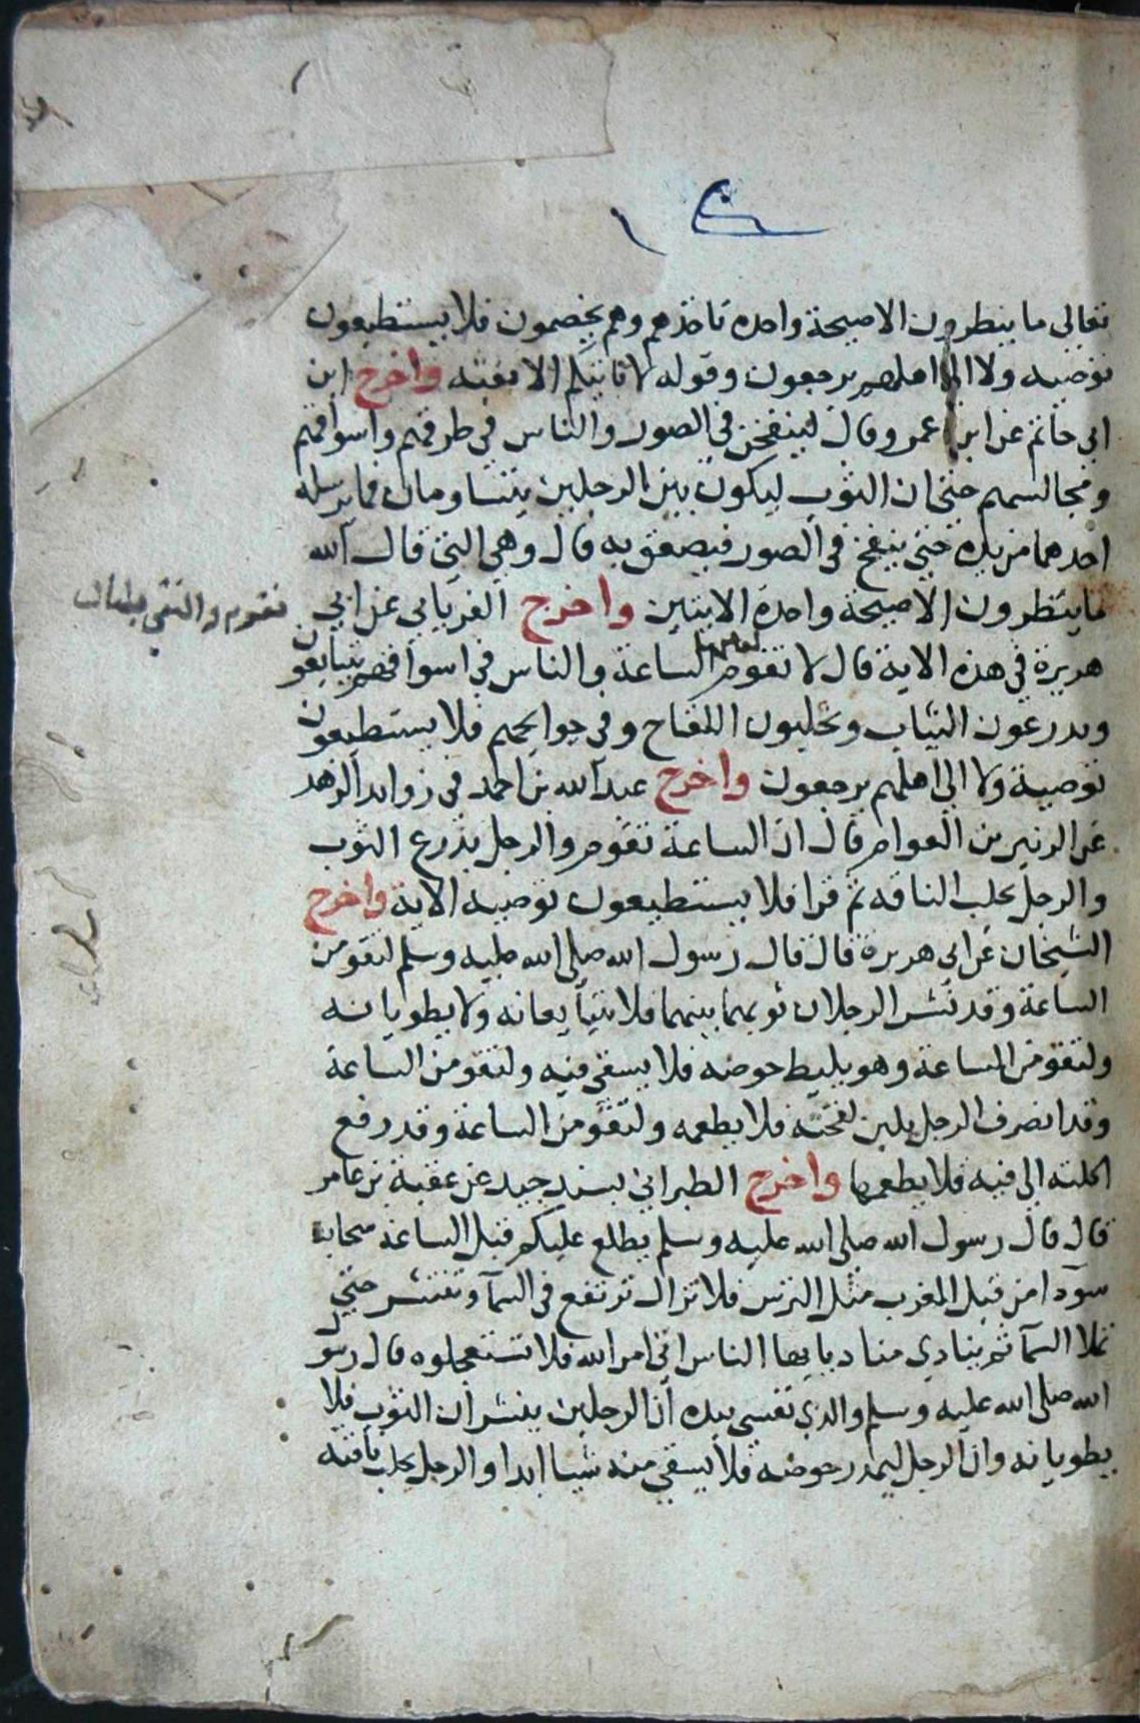 تعالى ما ينظرون الا صيحة واحده تاخذهم وهم يخصمون فلا يستطيعون
توصيه ولا الى اهلهم يرجعون وقوله لا تاتيكم الا بغته واخرج ابن
ابي حاتم عن ابن عمر وقال لينفخن في الصور والناس في طرقهم واسواقهم
ومجالسهم حتى ان الثوب ليكون بين الرجلين يتساومان فما يرسله
احدهما من يده حتى ينفخ في الصور فيصعق به قال وهي التي قال الله
ما ينظرون الا صيحة واحدة الايتين واخرج الفريابي عن ابي
هريرة في هذه الاية قال لا تقوم الساعة والناس في اسواقهم يتبايعون
ويدرعون الثياب ويحلبون اللقاح وفي حوايجهم فلا يستطيعون
توصية ولا الى اهلهم يرجعون واخرج عبد الله بن احمد في زوايد الزهد
عن الزبير بن العوام قال ان الساعة تقوم والرجل يذرع الثوب
والرجل يحلب الناقه ثم قرا فلا يستطيعون توصيه الاية واخرج
الشيخان عن ابي هريرة قال قال رسول الله صلى الله عليه وسلم لتقومن
الساعة وقد نشر الرجلان ثوبهما بينهما فلا يتبايعانه ولا يطويانه
ولتقومن الساعة وهو يليط حوضه فلا يسقي فيه ولتقومن الساعة
وقد انصرف الرجل بلبن لقحته فلا يطعمه ولتقومن الساعة وقد رفع
اكلته الى فيه فلا يطعمها واخرج الطبراني بسند جيد عن عقبة بن عامر
قال قال رسول الله صلى الله عليه وسلم يطلع عليكم قبل الساعة سحابة
سودا من قبل المغرب مثل الترس فلا تزال ترتفع في السما وتنتشر حتى
تملا السما ثم ينادي مناد يايها الناس اتى امر الله فلا تستعجلوه قال رسول
الله صلى الله عليه وسلم والذي نفسي بيده ان الرجلين ينشران الثوب فلا
يطويانه وان الرجل ليمدر حوضه فلا يسقي منه شيا ابدا والرجل يحلب ناقته